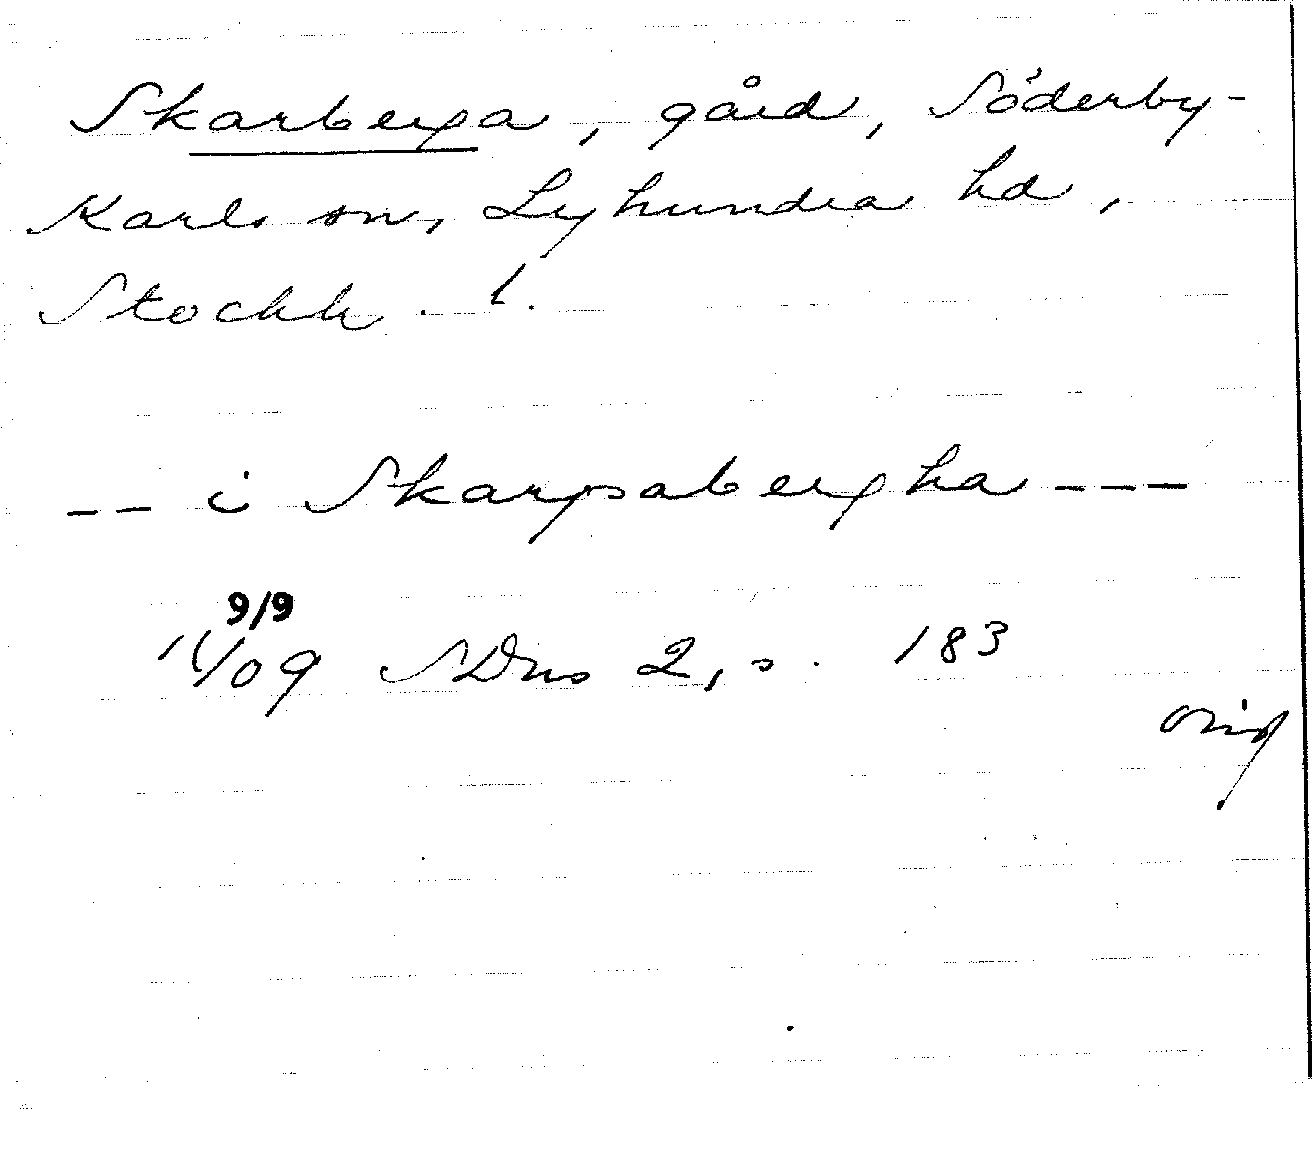 Skarberga, gård, Söderby-
Karls sn, Lyhundra hd,
Stockh. l.
-- i Skarpaabergha ---
9/9
1409 SDns 2, s. 183
orig